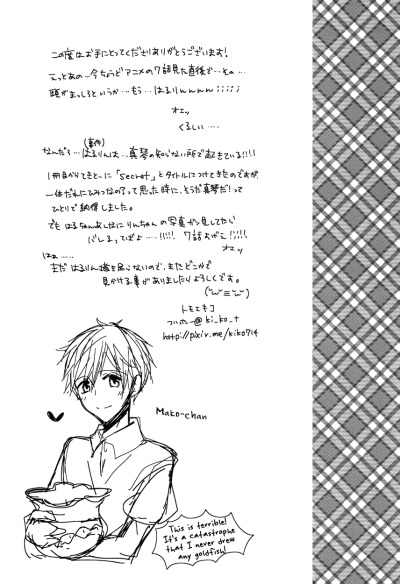 この度はお手にとってくださりありがとうございます!
えっとあの…今ちょうどアニメの7話見た直後で…その…
頭がまっしろというか…もう…はるりんんんん;;;;;
オエッ
くるしい….
(事件)
なんだろ…はるりんは…真琴の知らない所で起きている!!!
1冊目からてきとーに「secret」とタイトルにつけてきたのですが
一体だれにひみつなの?って思った時に、そうだ真琴だ!って
ひとりで納得しました。
でも はるちゃん
りんちゃんの写真ガン見してたし
バレるってばよ……!!!!! 7話
オエッ
はぁ……
まだ はるりん
ので、またどこかで
見かける事がありましたらよろしくです。
トモエキコ
ついったー@ki_ko_t
http://pixiv.me/kiko714
Mako-chan
This is terrible!
It's a catastrophe
that I never drew
any goldfish!